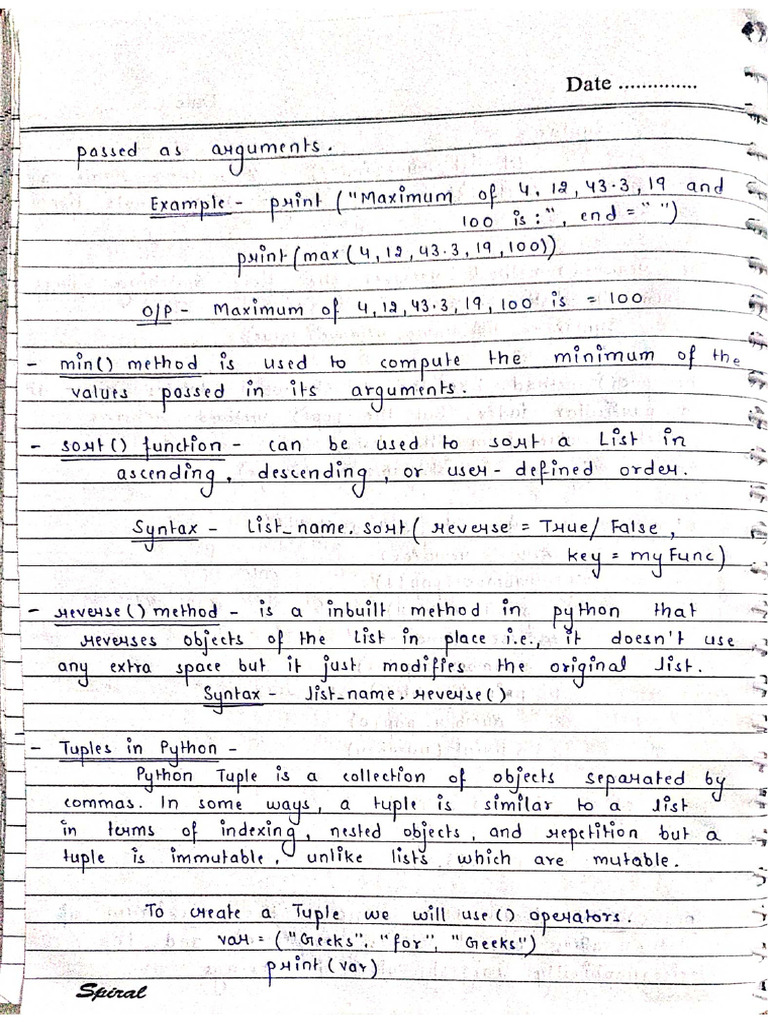 Date ..............
passed as arguments.
Example - print ("Maximum of 4, 12, 43.3, 19 and
100 is:", end = " ")
print (max (4, 12, 43.3, 19, 100))
O/P - Maximum of 4, 12, 43.3, 19, 100 is = 100
- min() method is used to compute the minimum of the
values passed in its arguments.
- sort() function - can be used to sort a List in
ascending, descending, or user-defined order.
Syntax - List_name. sort ( reverse = True/ False,
key = myFunc)
- reverse() method - is a inbuilt method in python that
reverses objects of the List in place i.e., it doesn't use
any extra space but it just modifies the original list.
Syntax - list_name. reverse()
- Tuples in Python -
Python Tuple is a collection of objects separated by
commas. In some ways, a tuple is similar to a list
in terms of indexing, nested objects, and repetition but a
tuple is immutable, unlike lists which are mutable.
To create a Tuple we will use () operators.
var = ("Geeks", "for", "Geeks")
print (var)
Spiral